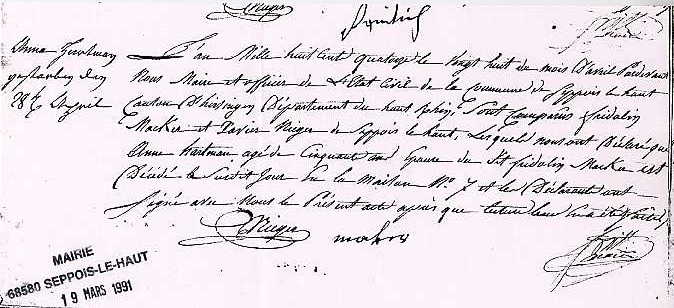 Anna Hartman
gestorben den
28t. Appril
L'an Mille huit Cent quatorze le Vingt huit du mois D'avril Pardevant
Nous Maire et officier de L'Etat Civil de la Commune de Seppois le haut
Canton D'hirsingen Département du haut Rhin, Sont Comparus fridolin
Macker et Xavier Rieger de Seppois le haut, Lesquels nous ont Déclaré que
Anne hartman agé de Cinquante ans du fridolin Macker est
Décédé le Susdit Jour En la Maison No. 7 et les Déclarant ont
Signé avec Nous le Présent acte après que lecture leur En a été faite
Rieger
MAIRIE
68580 SEPPOIS-LE-HAUT
19 MARS 1991